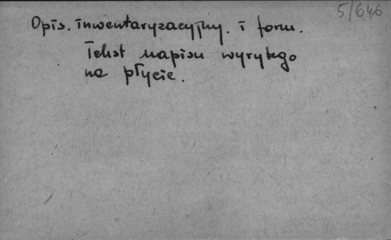 5/646
Opis. inwentaryzacyjny. i form.
Tekst napisu wyrytego
na płycie.